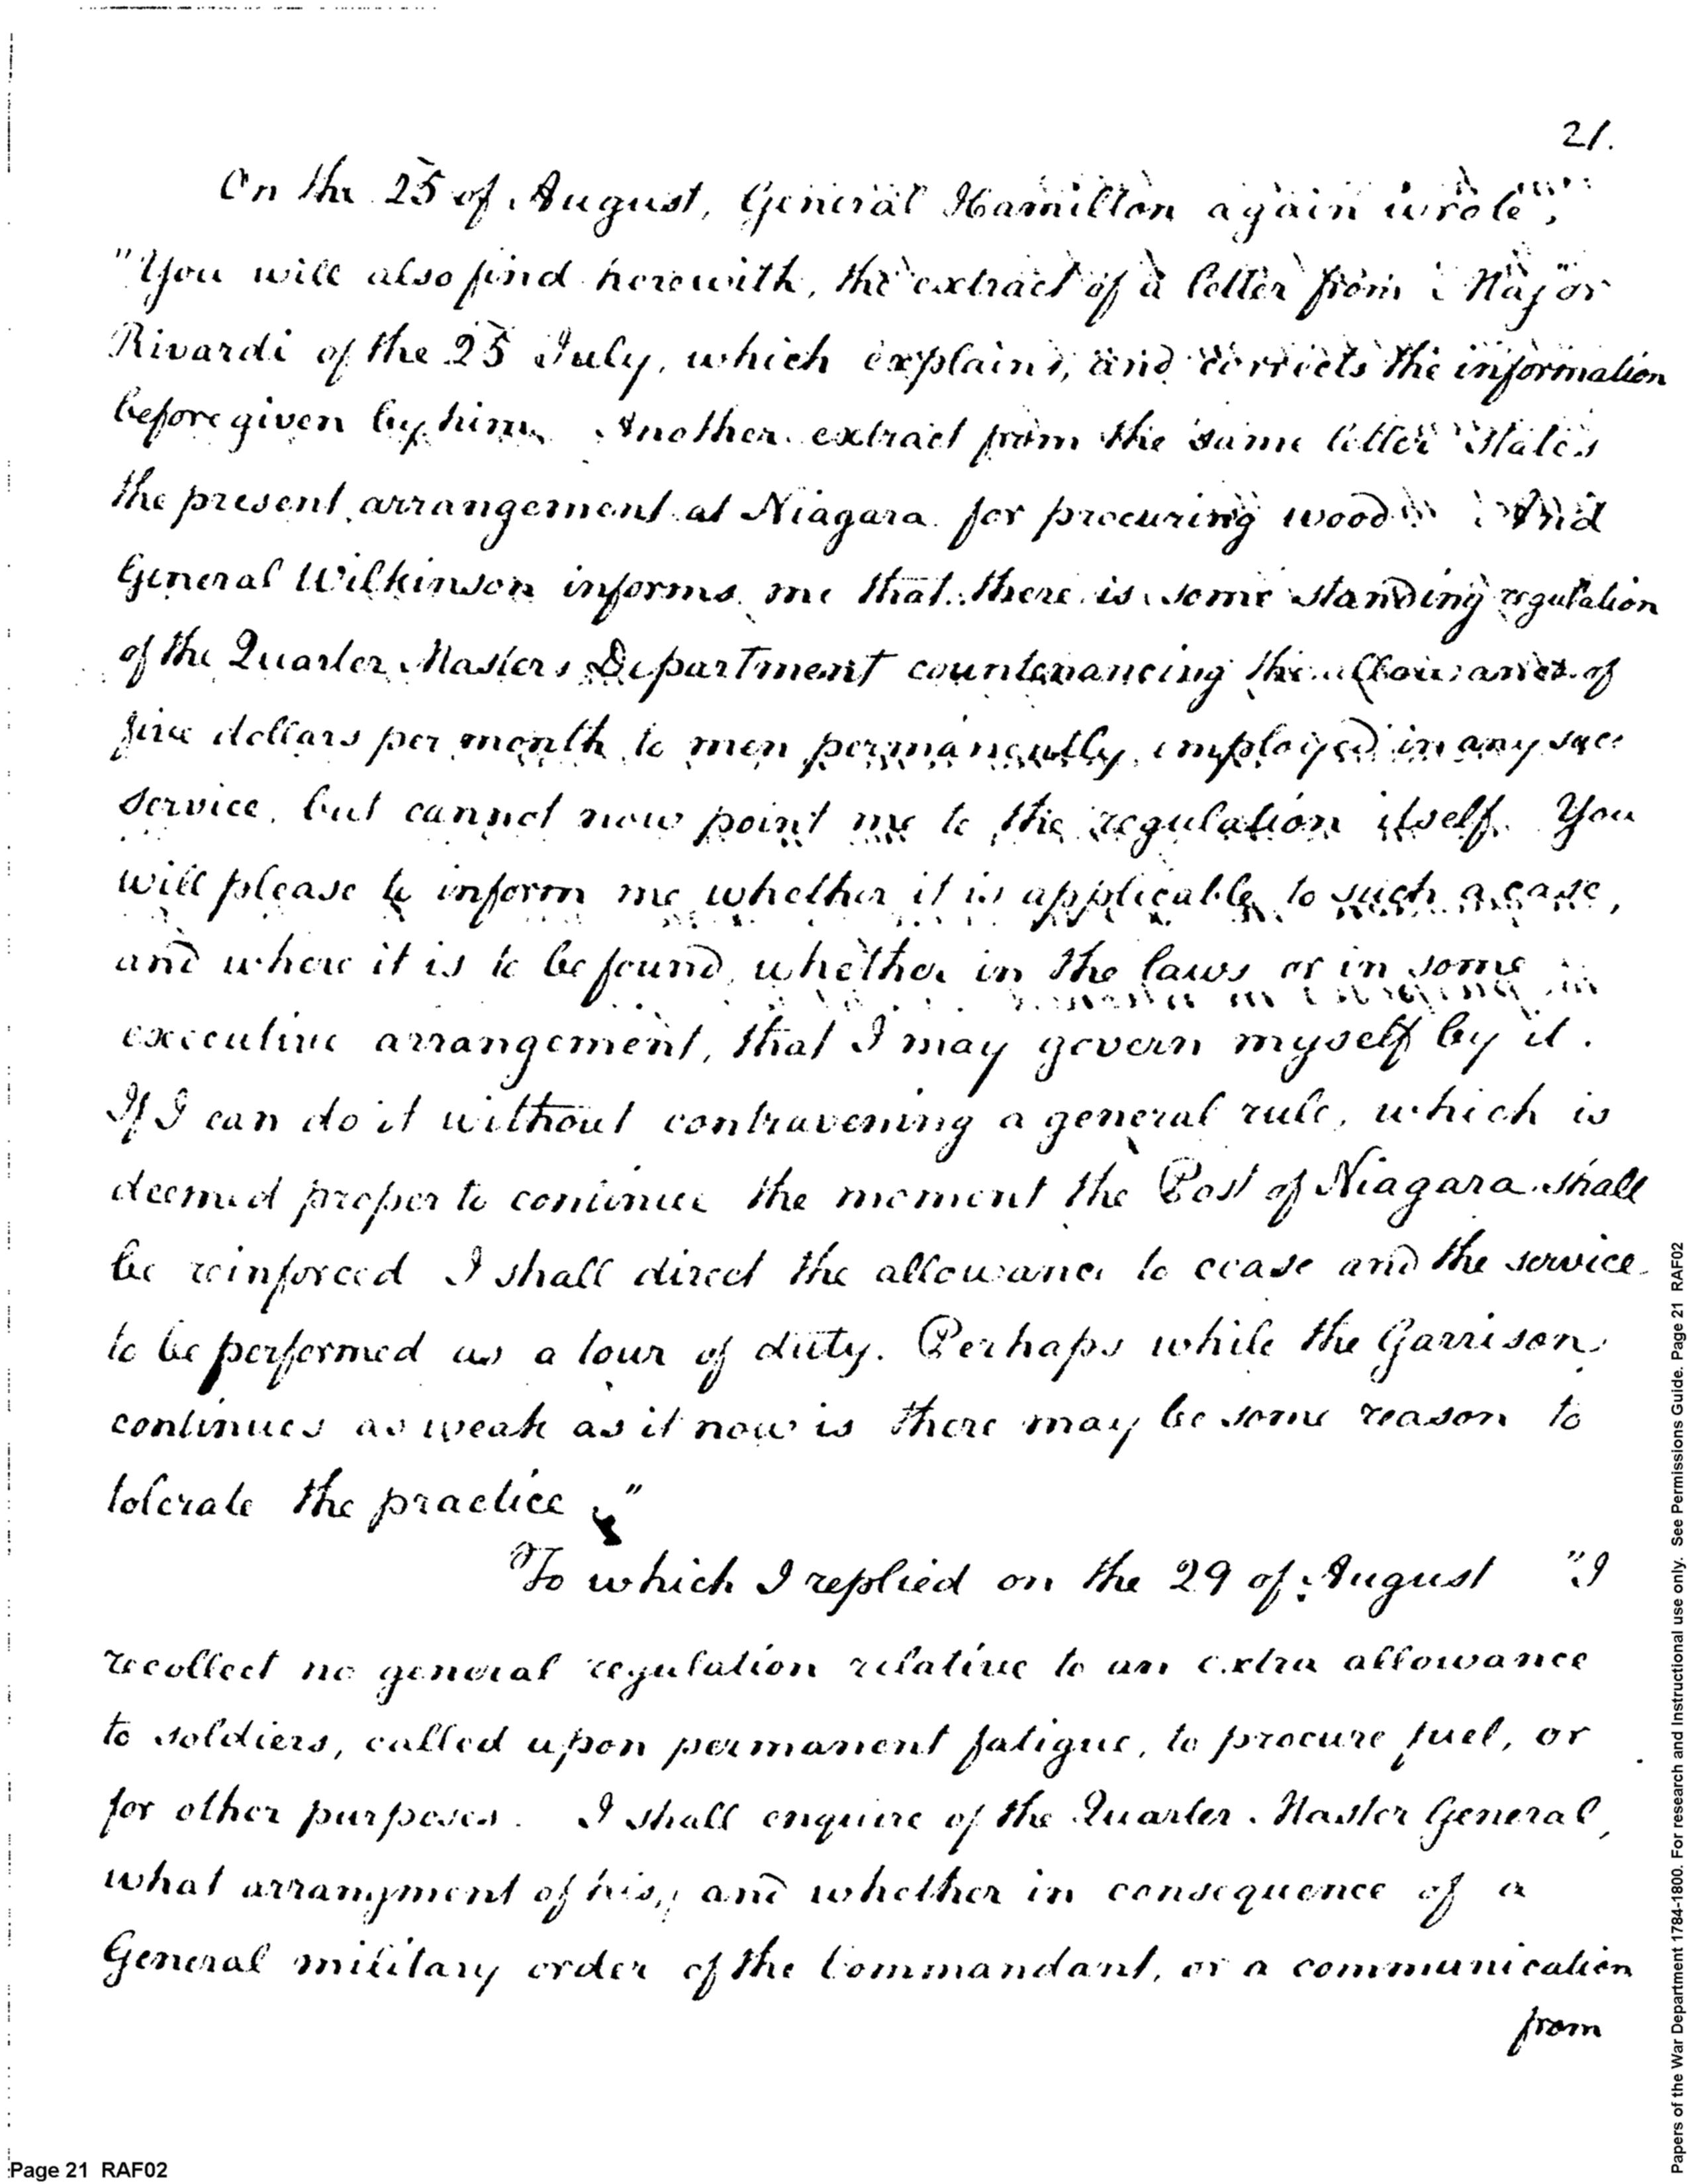 21.
On the 25 of August, General Hamilton again wrote,
"You will also find herewith, the extract of a letter from Major
Rivardi of the 25 July, which explains, and corrects the information
before given by him. Another extract from the same letter states
the present arrangement at Niagara for procuring wood. And
General Wilkinson informs me that there is some standing regulation
of the Quarter Masters Department countenancing the allowance of
five dollars per month to men permanently employed in any such
service, but cannot now point me to the regulation itself. You
will please to inform me whether it is applicable to such a case,
and where it is to be found, whether in the laws or in some
executive arrangement, that I may govern myself by it.
If I can do it without contravening a general rule, which is
deemed proper to continue the moment the Post of Niagara shall
be reinforced I shall direct the allowance to cease and the service
to be performed as a tour of duty. Perhaps while the Garrison
continues as weak as it now is there may be some reason to
tolerate the practice."
To which I replied on the 29 of August "I
recollect no general regulation relative to an extra allowance
to soldiers, called upon permanent fatigue, to procure fuel, or
for other purposes. I shall enquire of the Quarter Master General,
what arrangment of his, and whether in consequence of a
General military order of the Commandant, or a communication
from
Page 21 RAF02
Papers of the War Department 1784-1800. For research and instructional use only. See Permissions Guide. Page 21 RAF02